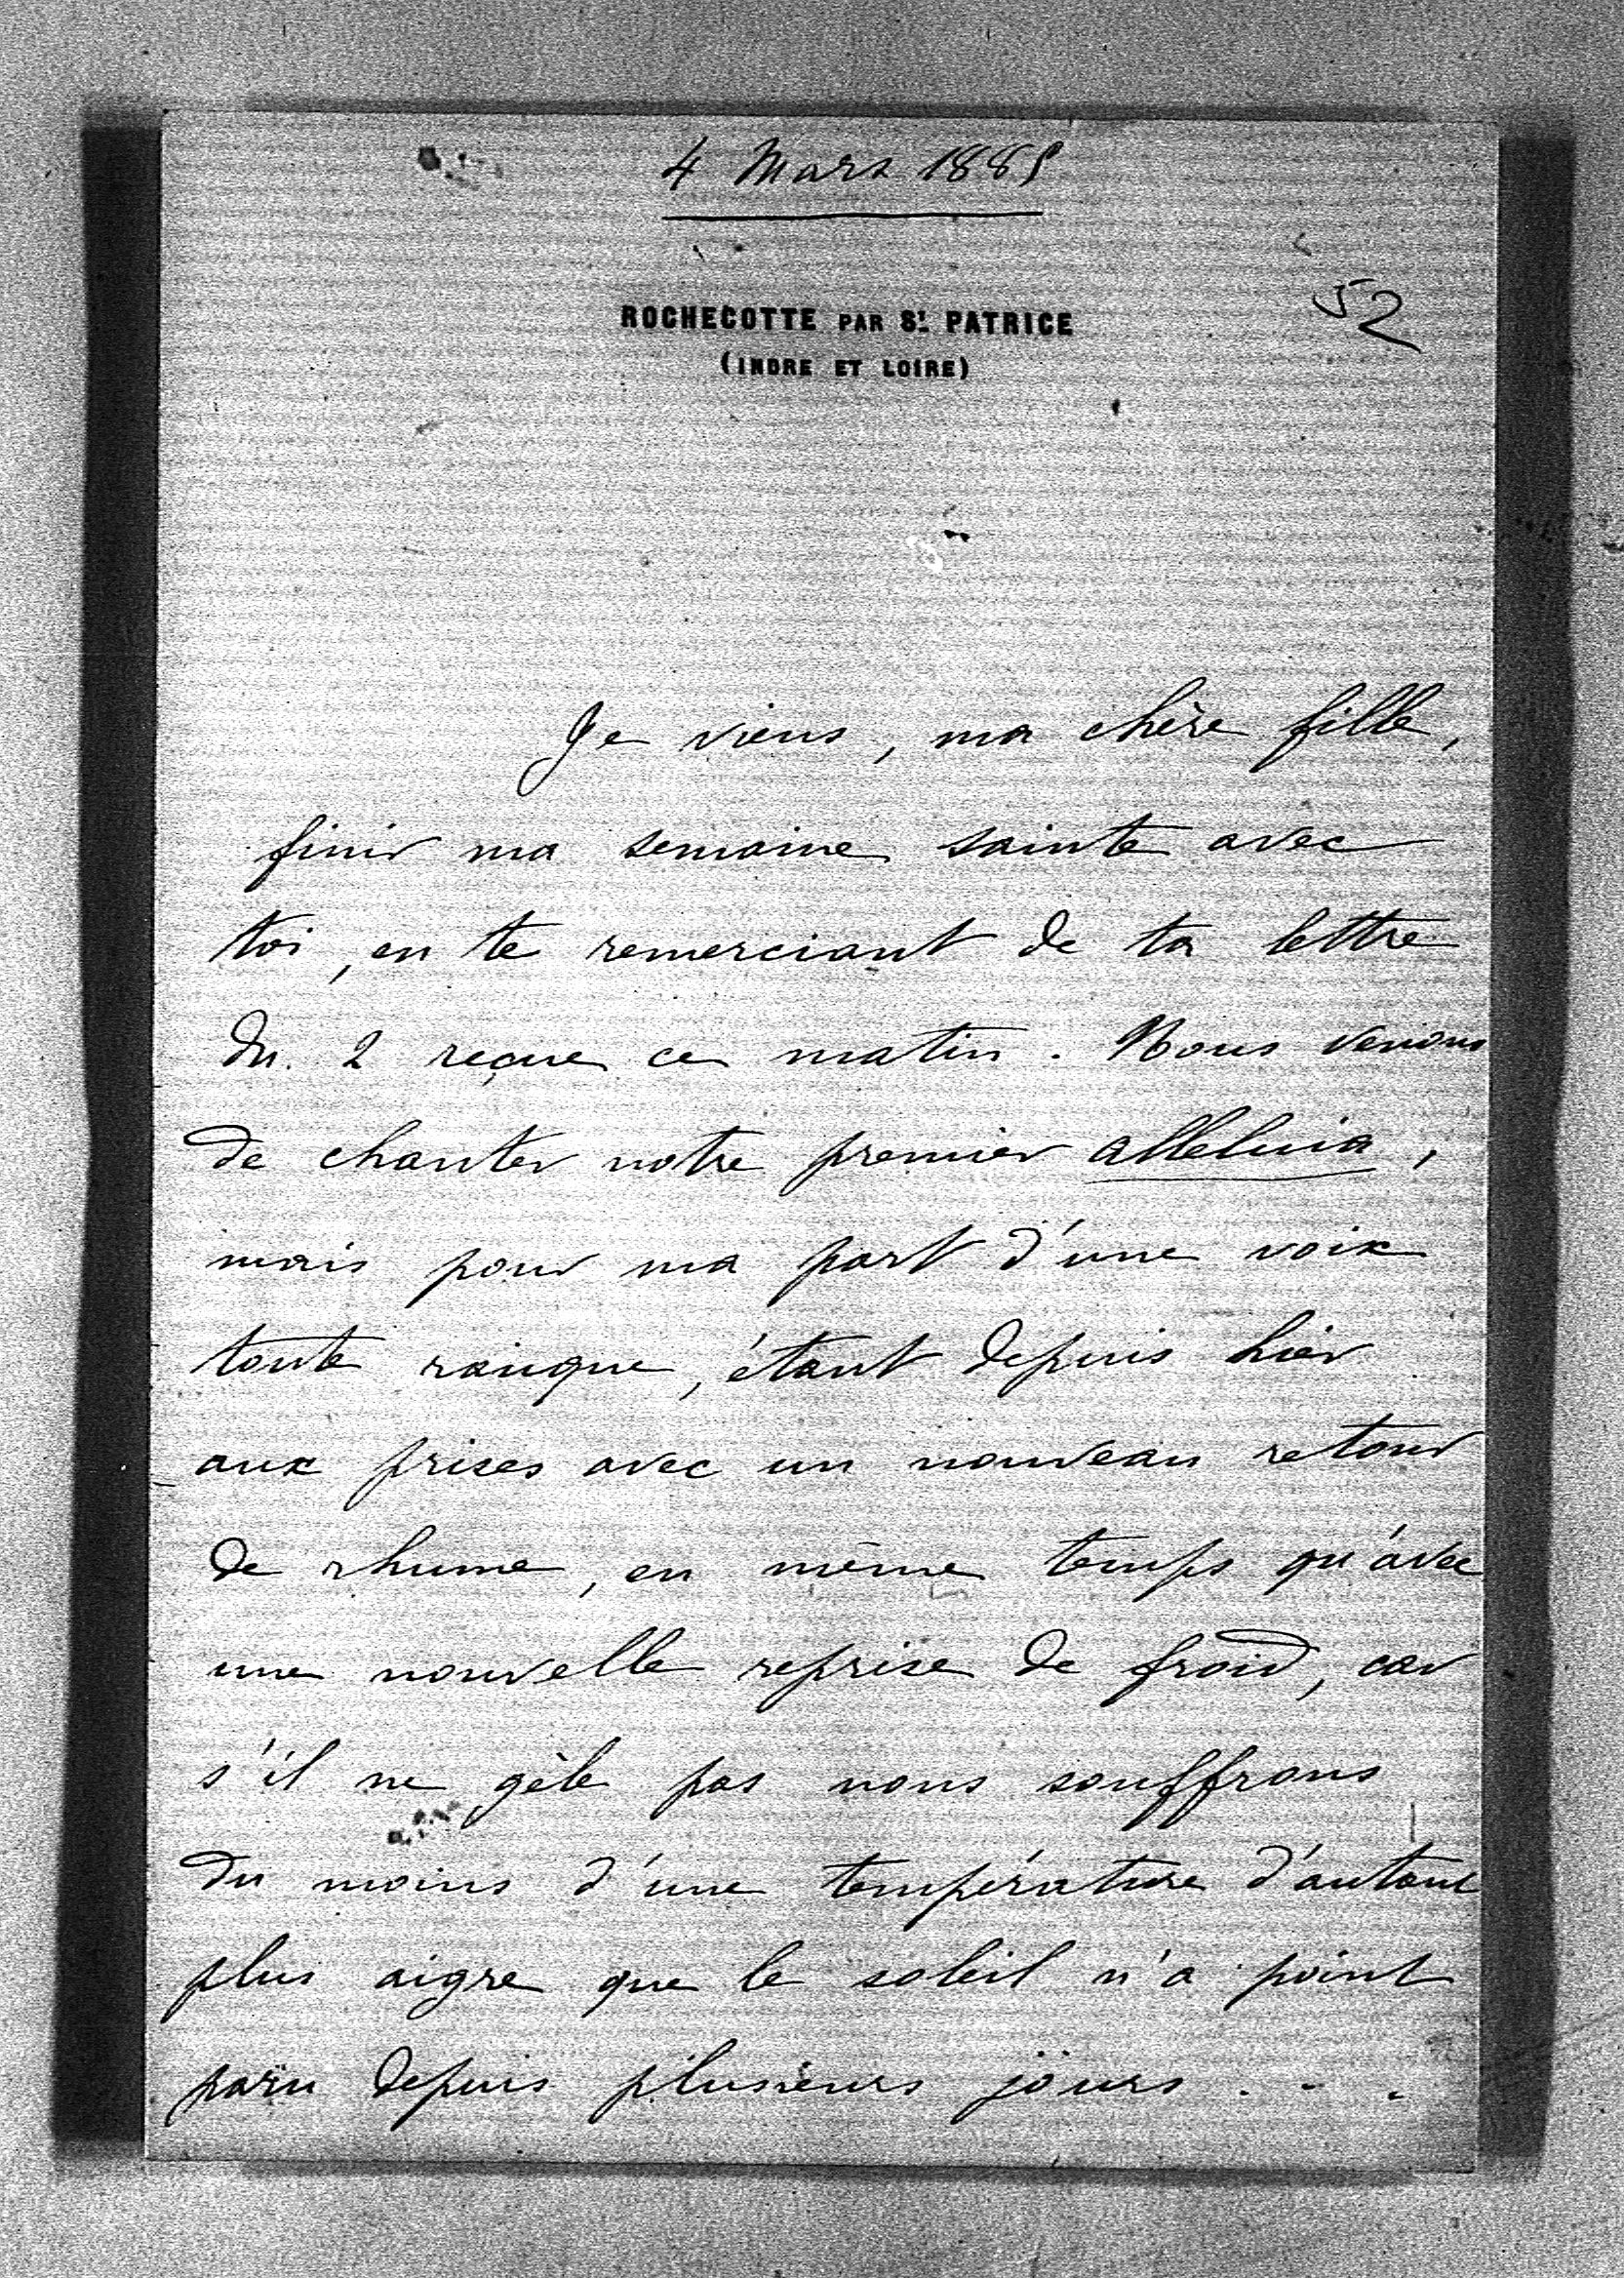 4 Mars 1885
52
ROCHECOTTE PAR ST PATRICE
(INDRE ET LOIRE)
Je viens, ma chère fille,
finir ma semaine sainte avec
toi, en te remerciant de ta lettre
du 2 reçue ce matin. Nous venons
de chanter notre premier alleluia,
mais pour ma part d'une voix
toute rauque, étant depuis hier
aux prises avec un nouveau retour
de rhume, en même temps qu'avec
une nouvelle reprise de froid, car
s'il ne gèle pas nous souffrons
du moins d'une température d'autant
plus aigre que le soleil n'a point
paru depuis plusieurs jours . . .